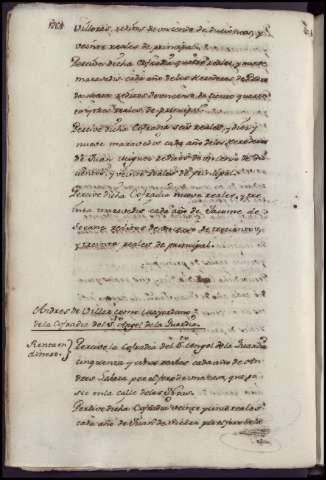 Villotas, reditos de un censo de ducientos, y
veinte reales de principal.
Percive dicha Cofradia quatro reales, y nueve
maravedis cada año de los herederos de Pedro
reditos de un censo de ciento quaren
ta y tres reales de principal.
Percive dicha Cofradia seis reales, y diez y
nueve maravedis cada año de los herederos
de Juan reditos de un censo de du
cientos, y veinte reales de principal.
Percive dicha Cofradia nueve reales, y tre
inta maravedis cada año de Jacome de
Seoane reditos de un censo de trecientos,
y treinta reales de principal.
Andres de Villar como Mayordomo
de la Cofradia del Sto. Angel de la Guarda.
Renta en
dinero.
Percive la Cofradia del Sto. Angel de la Guarda
cinquenta y ocho reales cada año de An
dres por el foro de una casa, que po
see en la calle de los
Percive dicha Cofradia veinte y un reales
cada año de Juan de por el foro de